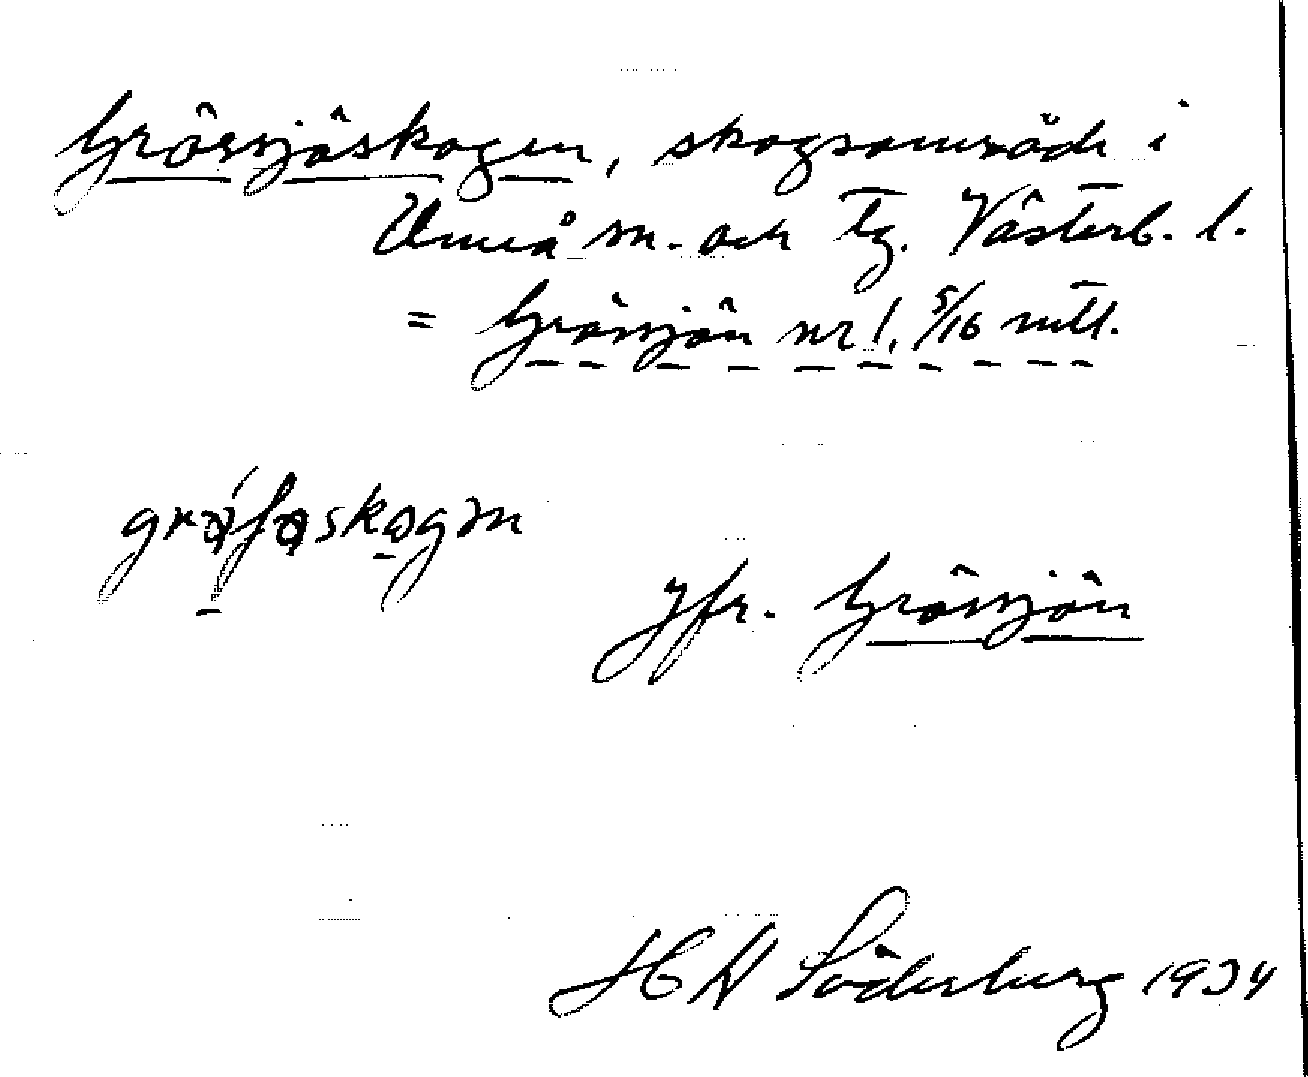 Grössjöskogen, skogsområde i
Umeå sn. och tg. Västerb. l.
= Grössjön nr 1, 5/16 mtl.
Jfr. Grössjön
H Söderberg 1934